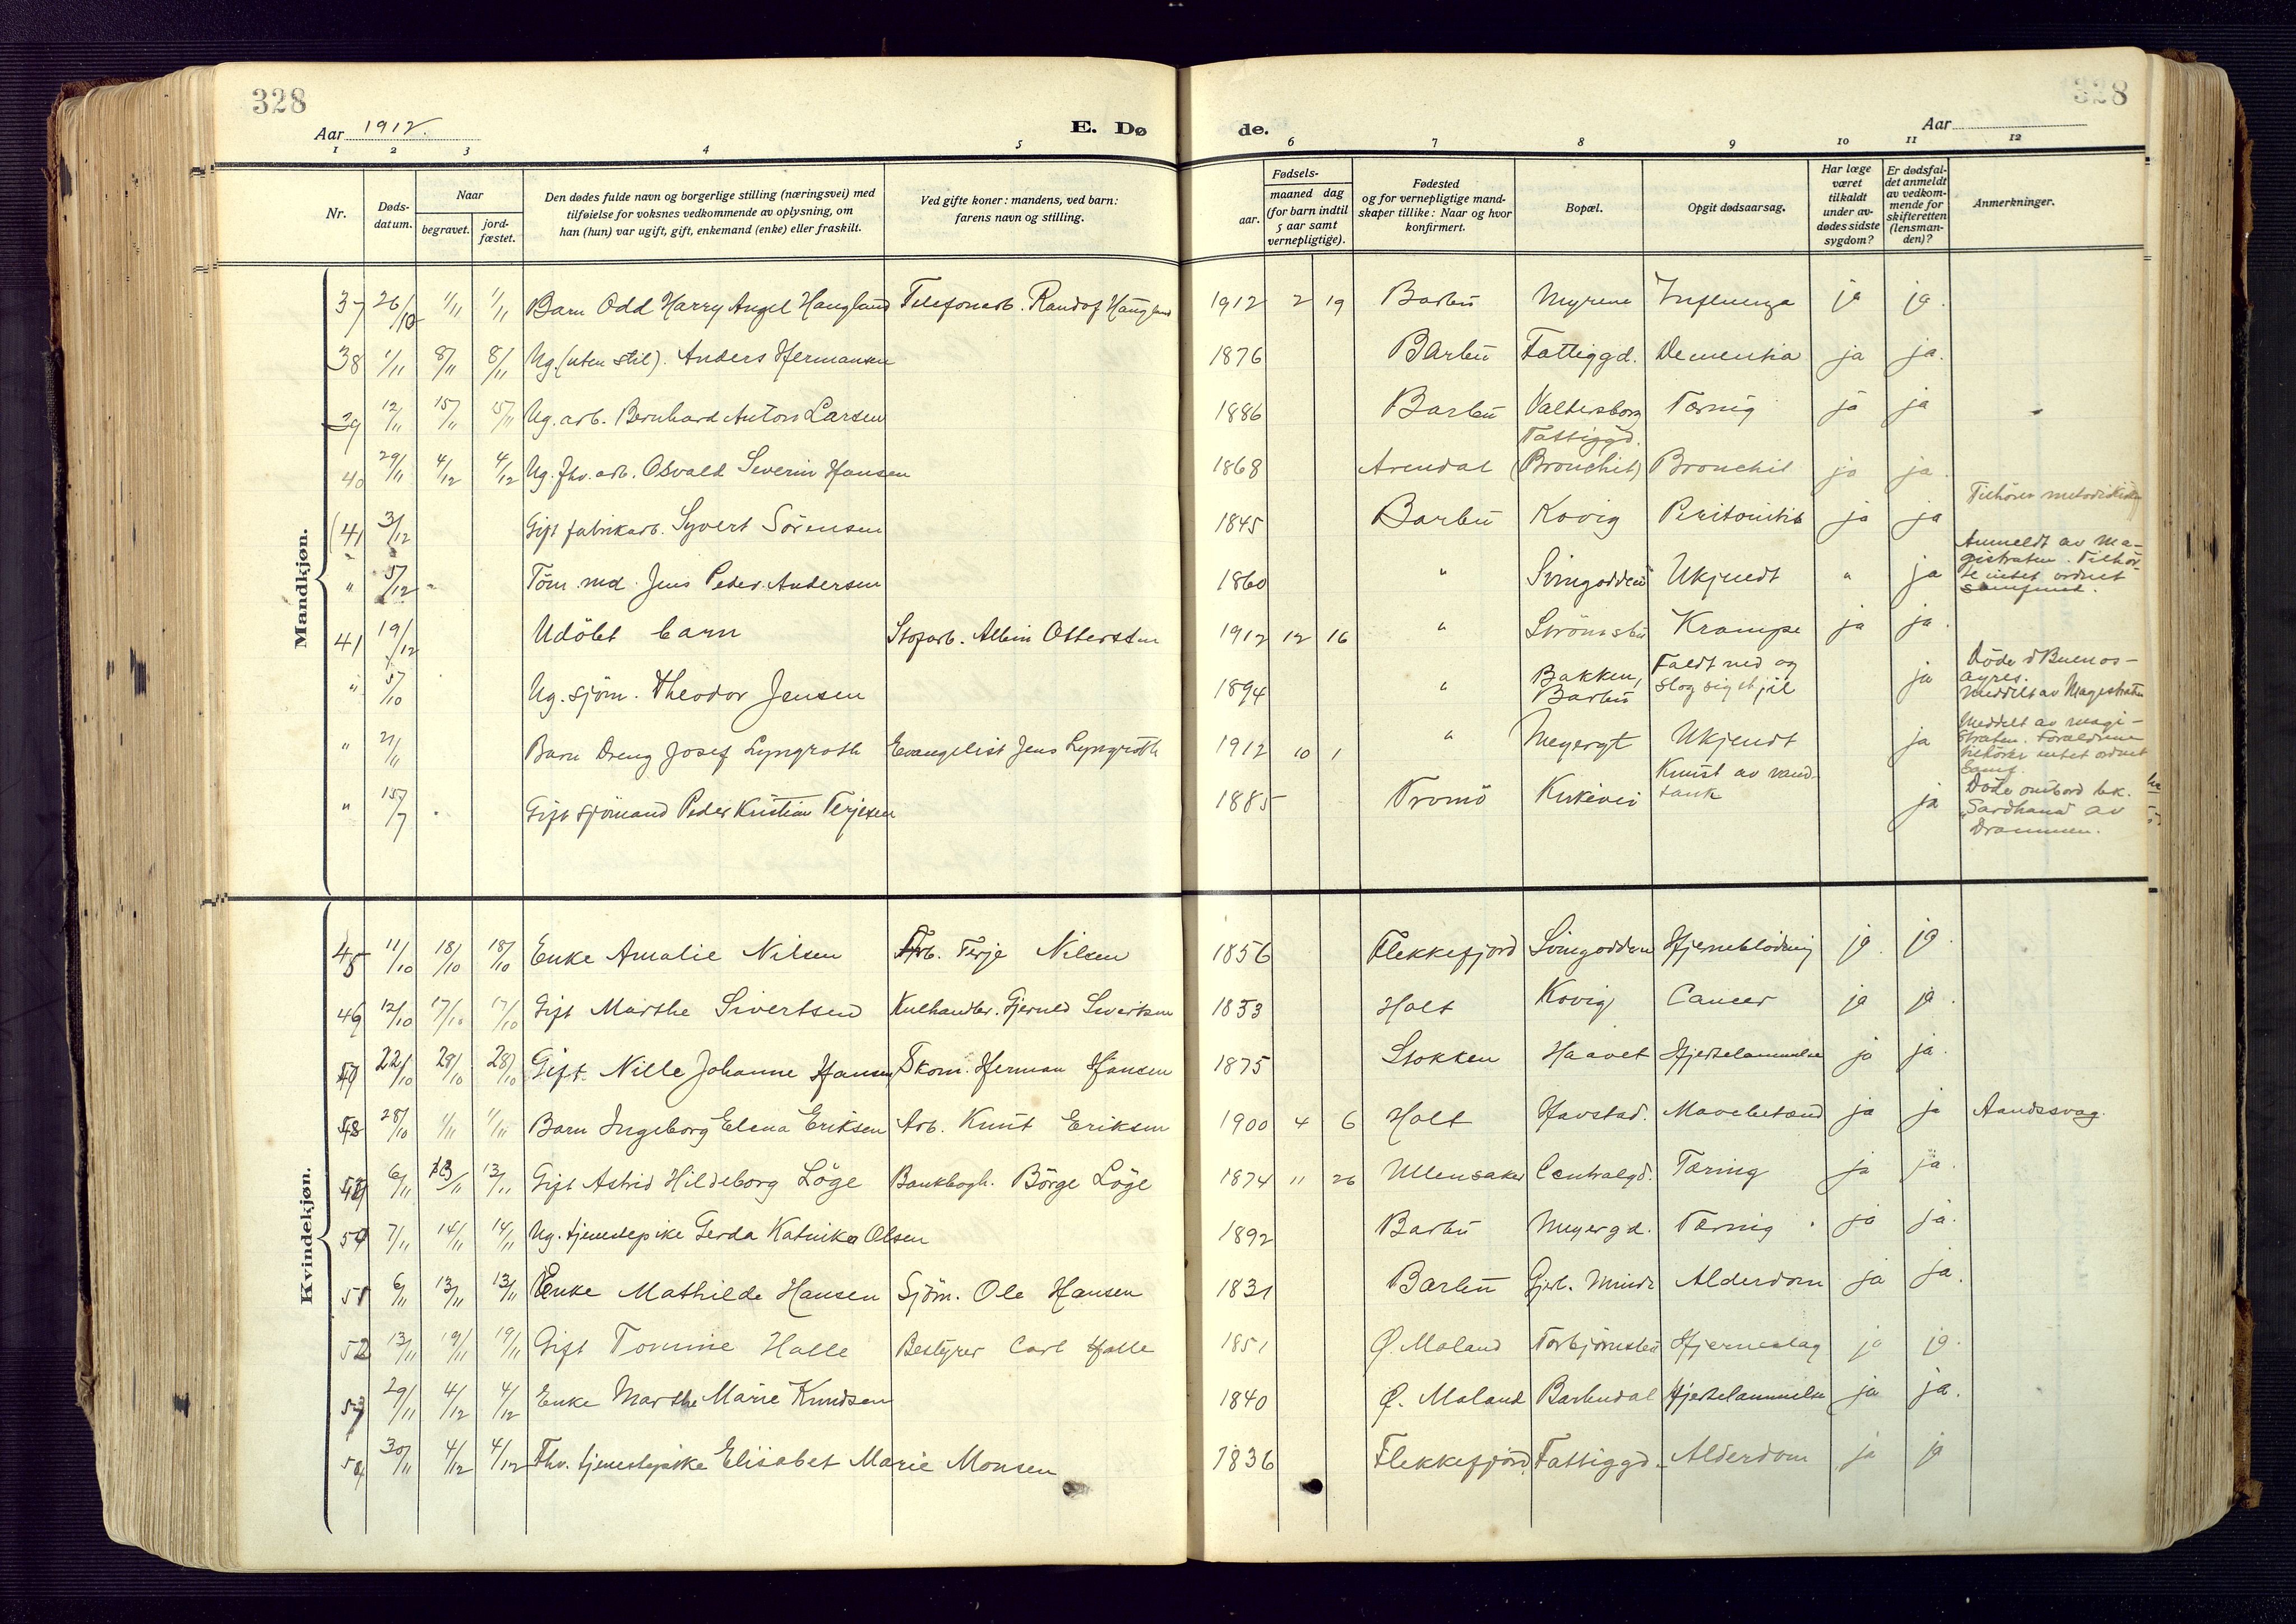 328
328
Aar 1912.
E. Dø
de.
Aar
1 2 3 4 5 6 7 8 9 10 11 12
Nr.
Døds-
datum.
Naar
begravet.
jord-
fæstet.
Den dødes fulde navn og borgerlige stilling (næringsvei) med
tilføielse for voksnes vedkommende av oplysning, om
han (hun) var ugift, gift, enkemand (enke) eller fraskilt.
Ved gifte koner: mandens, ved barn:
farens navn og stilling.
Fødsels-
aar.
maaned dag
(for barn indtil
5 aar samt
vernepligtige).
Fødested
og for vernepligtige mand-
skaper tillike: Naar og hvor
konfirmert.
Bopæl.
Opgit dødsaarsag.
Har læge
været
tilkaldt
under av-
dødes sidste
sygdom?
Er dødsfal-
det anmeldt
av vedkom-
mende for
skifteretten
(lensman-
den)?
Anmerkninger.
Mandkjøn.
37 26/10 1/11 1/11 Barn Odd Harry Angel Haugland Telefonarb. Randof Haugland 1912 2 19 Barbu Myrene Influenza ja ja.
38 1/11 8/11 8/11 Ug. (uten stil). Anders Hermansen 1876 Barbu Fattiggd. Dementia ja ja.
39 12/11 15/11 15/11 Ug. arb. Bernhard Anton Larsen 1886 Barbu Valtersborg Tæring ja ja
40 29/11 4/12 4/12 Ug. fhv. arb. Osvald Severin Hansen 1868 Arendal Fattiggd. (Bronchit) Bronchit ja ja.
(41 3/12 Gift fabrikarb. Syvert Sörensen 1845 Barbu Kovig Peritonitis ja ja Tilhörer metodistkirken
" 5/12 Töm. md. Jens Peder Andersen 1860 " Svingodden Ukjendt " ja Anmeldt av Ma-
gistraten. Tilhör-
te intet ordnet
samfund.
41 19/12 Udöbt barn Stofarb. Albin Ottersten 1912 12 16 " Strömsbu Krampe ja ja.
" 5/10 Ug. sjöm. Theodor Jensen 1894 " Bakken, Barbu Faldt ned og
slog sig ihjel ja Döde i Buenos-
ayres.
Meddelt av Magistraten
" 21/11 Barn Dreng Josef Lyngroth Evangelist Jens Lyngroth 1912 10 1 " Meyergt Ukjendt ja Meddelt av magi-
straten. Forældrene
tilhörer intet ordnet
Samf.
" 15/7 Gift sjömand Peder Kristian Terjesen 1885 Tromö Kirkevei ja Döde ombord bk.
"Sardhana" av
Drammen.
Kvindekjøn.
45 11/10 18/10 18/10 Enke Amalie Nilsen Arb. Terje Nilsen 1856 Flekkefjord Svingodden Hjerneblödning ja. ja.
46 12/10 17/10 17/10 Gift Marthe Sivertsen Kulhandler. Gjeruld Sivertsen 1853 Holt Kovig Cancer ja ja.
47 22/10 29/10 28/10 Gift. Nille Johanne Hansen Skom. Herman Hansen 1875 Stokken Haavet Hjertelammelse ja ja.
48 28/10 1/11 1/11 Barn Ingeborg Elena Eriksen Arb. Knut Eriksen 1900 4 6 Holt Havstad. Mavebetænd ja ja Aandssvag.
49 6/11 13/11 13/11 Gift Astrid Hildeborg Löge Bankbogh. Börge Löge 1874 11 26 Ullensaker Centralgd. Tæring ja ja.
50 7/11 14/11 14/11 Ug. tjenestepike Gerda Katinka Olsen 1892 Barbu Meyergd. Tæring ja ja.
51 6/11 13/11 13/11 Enke Mathilde Hansen Sjöm. Ole Hansen 1831 Barbu Gjert. Minde Alderdom ja ja.
52 13/11 19/11 19/11 Gift Tomine Halle Bestyrer Carl Halle 1851 Ø. Moland Torbjörnsbu Hjerneslag ja ja.
53 29/11 4/12 4/12 Enke Marthe Marie Knudsen 1840 Ø. Moland Barbudal Hjertelammelse ja ja.
54 30/11 4/12 4/12 Fhv. tjenestepike Elisabet Marie Monsen 1836 Flekkefjord Fattiggd. Alderdom ja ja